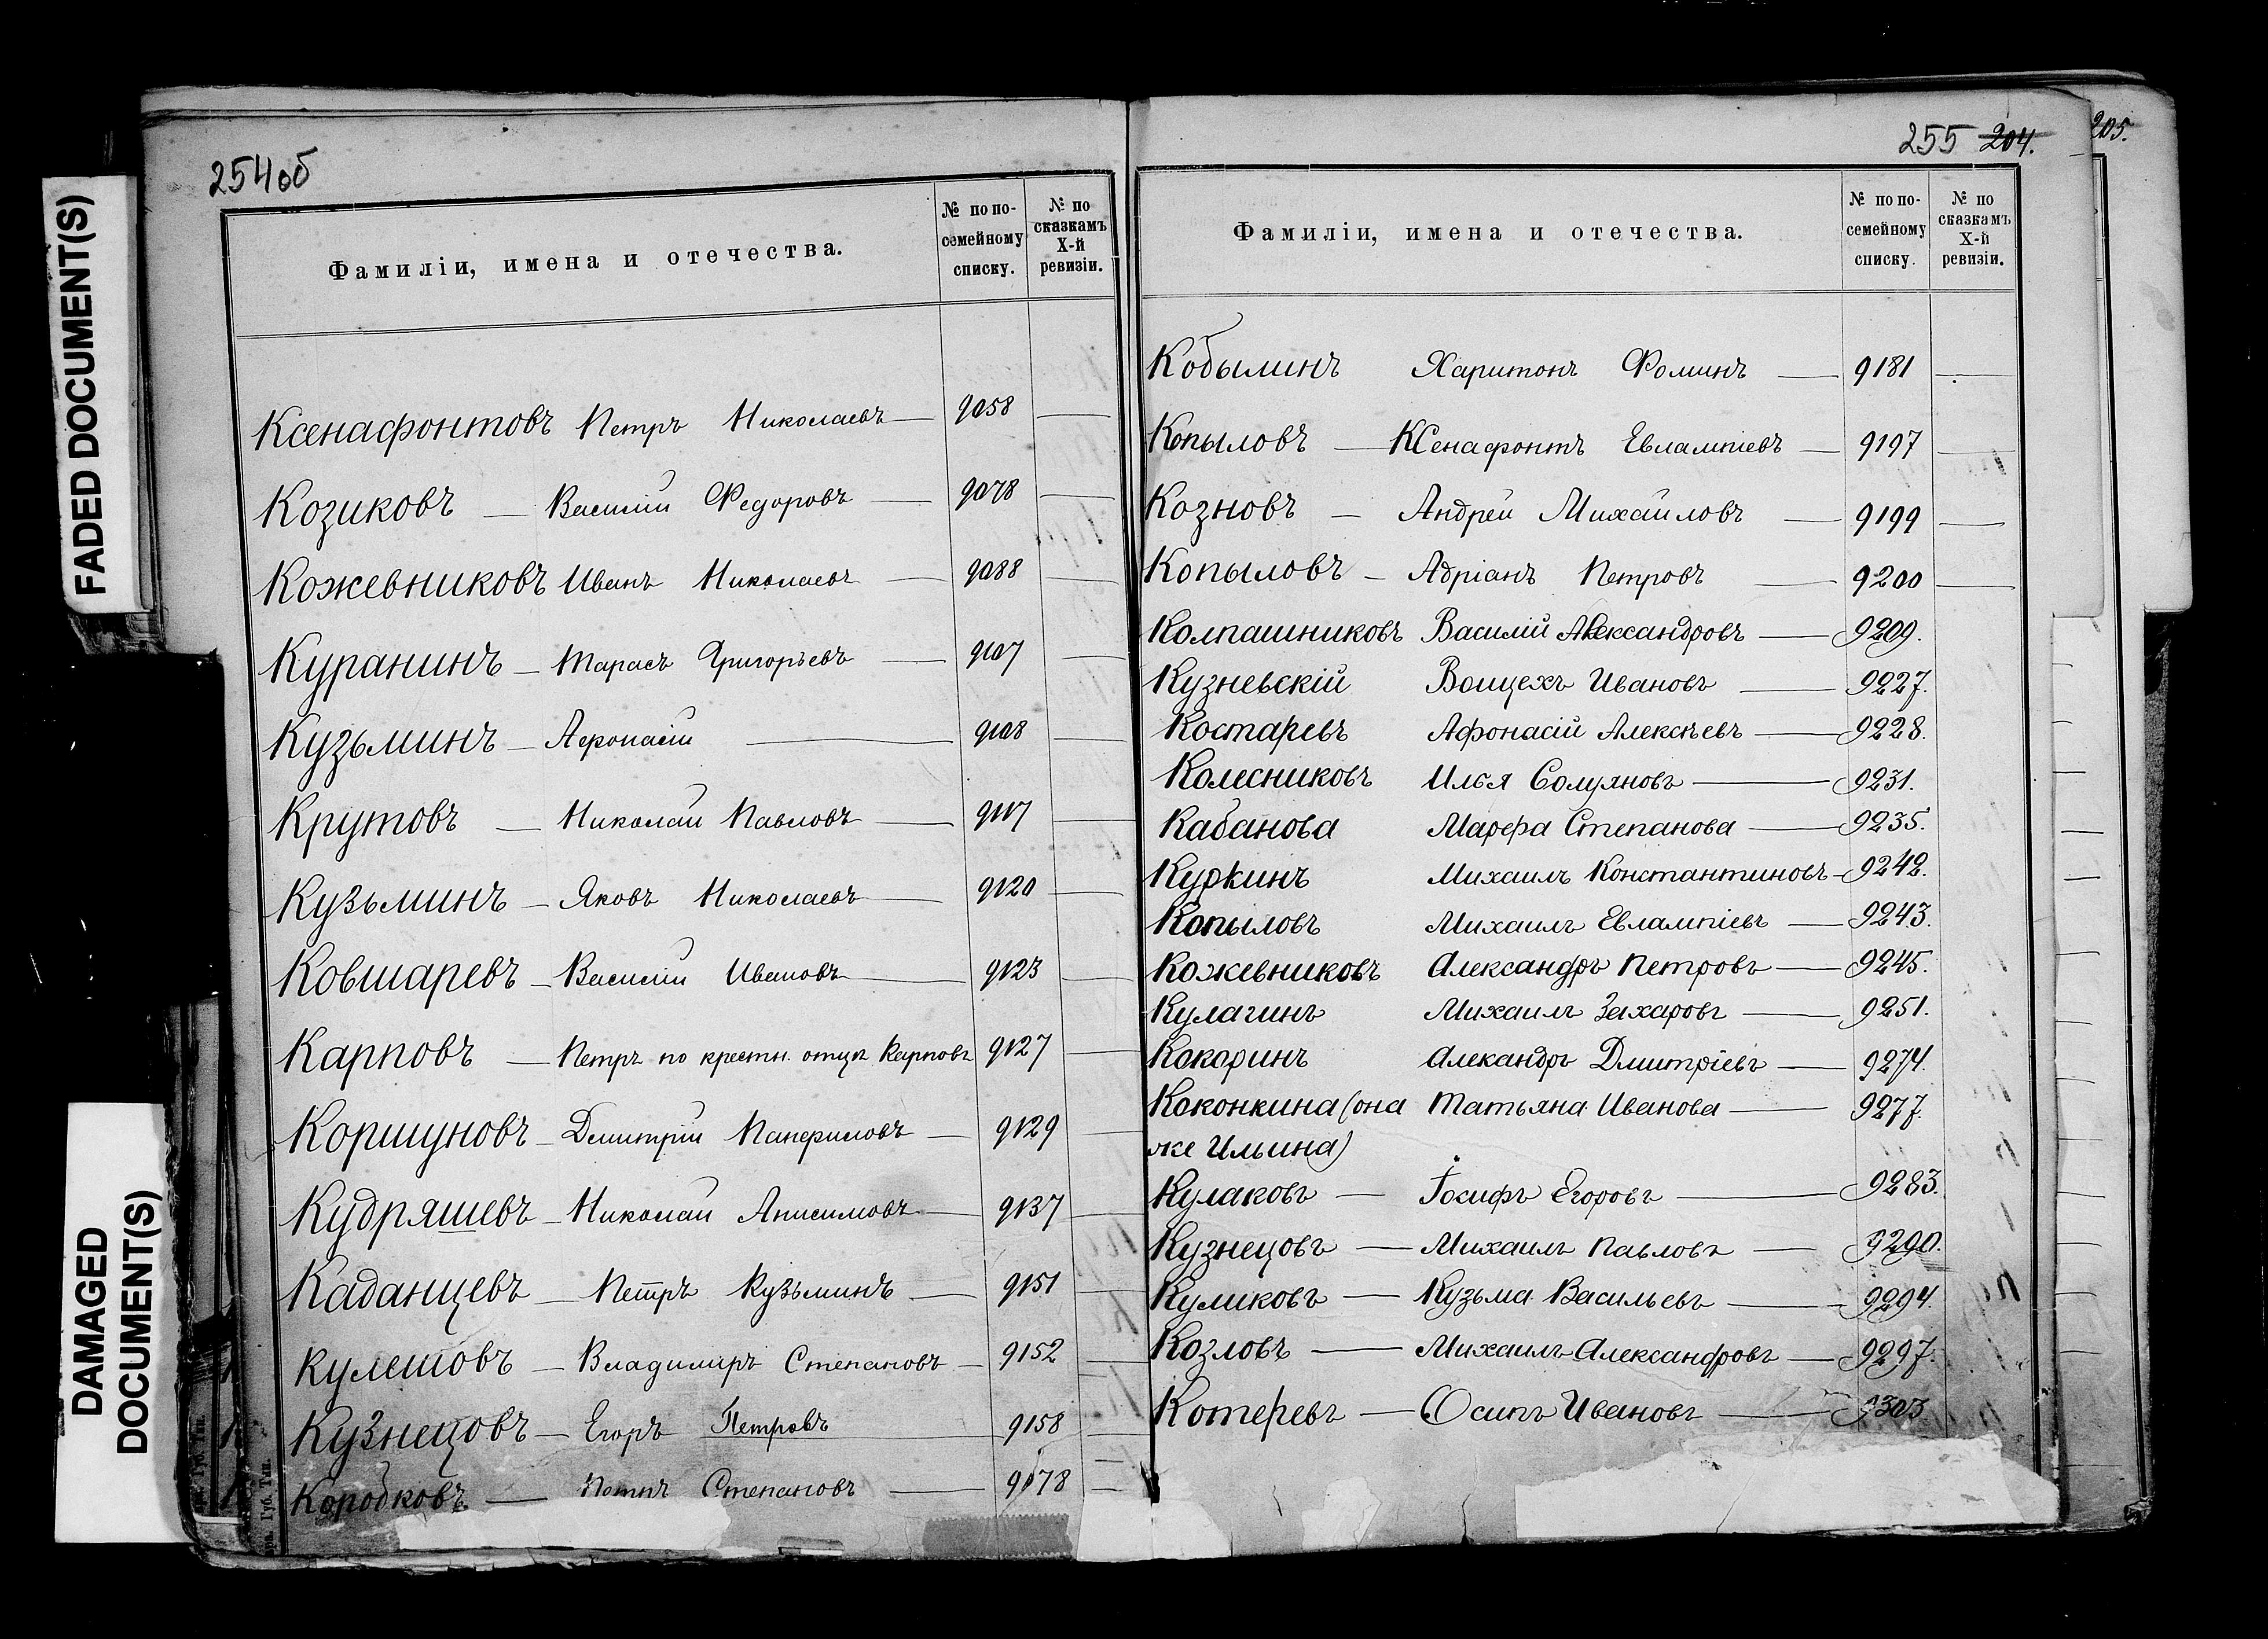 FADED DOCUMENT(S)
DAMAGED
DOCUMENT(S)
254об
Фамиліи, имена и отечества.
№ по по-
семейному
списку.
№ по
сказкамъ
X-й
ревизіи.
Ксенафонтовъ Петръ Николаевъ — 9058
Козиковъ — Василій Федоровъ — 9078
Кожевниковъ Иванъ Николаевъ — 9088
Куранинъ — Тарасъ Григорьевъ — 9107
Кузьминъ — Афонасій — 9108
Крутовъ — Николай Павловъ — 9117
Кузьминъ — Яковъ Николаевъ — 9120
Ковшаревъ — Василій Ивановъ — 9123
Карповъ — Петръ по крестн. отцу Карповъ 9127
Коршуновъ — Дмитрій Панфиловъ — 9129
Кудряшевъ — Николай Анисимовъ — 9137
Каданцевъ — Петръ Кузьминъ — 9151
Кулешовъ — Владимиръ Степановъ — 9152
Кузнецовъ — Егоръ Петровъ 9158
Коробковъ — Петръ Степановъ — 9178
255 204.
205.
Фамиліи, имена и отечества.
№ по по-
семейному
списку.
№ по
сказкамъ
X-й
ревизіи.
Кобылинъ Харитонъ Фоминъ — 9181
Копыловъ — Ксенафонтъ Евлампіевъ — 9197
Козновъ — Андрей Михайловъ — 9199
Копыловъ — Адріанъ Петровъ — 9200
Колпашниковъ Василій Александровъ — 9209.
Кузневскій Войцехъ Ивановъ — 9227.
Костаревъ Афонасій Алексѣевъ — 9228.
Колесниковъ Илья Солуяновъ — 9231.
Кабанова Марфа Степанова — 9235.
Куркинъ Михаилъ Константиновъ — 9242.
Копыловъ Михаилъ Евлампіевъ — 9243.
Кожевниковъ Александръ Петровъ — 9245.
Кулагинъ Михаилъ Захаровъ — 9251.
Кокаринъ Алекандръ Дмитріевъ — 9274.
Коконкина (она Татьяна Иванова — 9277.
же Ильина)
Кулаковъ — Іосифъ Егоровъ — 9283.
Кузнецовъ — Михаилъ Павловъ — 9290.
Куликовъ — Кузьма Васильевъ — 9294.
Козловъ — Михаилъ Александровъ — 9297.
Котеревъ — Осипъ Ивановъ — 9303
Губ. Тип.